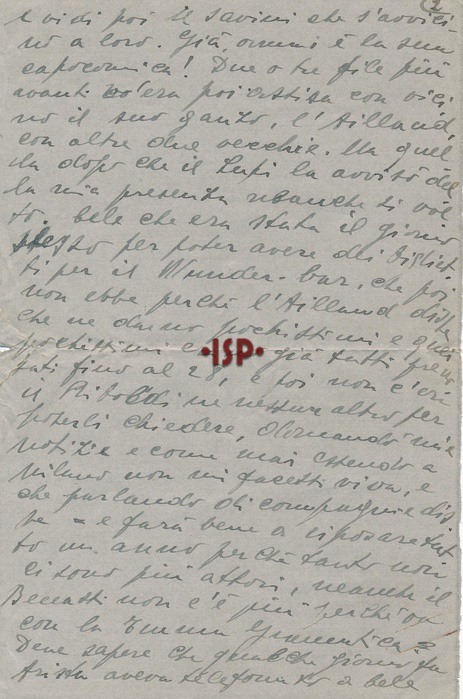 (2
e vidi poi il Savini che s'avvici
nò a loro. Già, ormai è la sua
capocomica! Due o tre file più
avanti c'era poi Tissa con vici
no il suo ganzo, l'Aillaud,
con altre due vecchie. Ma quel
la dopo che il Lupi la avvisò del
la mia presenza neanche si vol
tò. bele che era stata il giorno
stesso per poter avere dei bigliet
ti per il Wunder-bar, che poi
non ebbe perchè l'Aillaud disse
che ne danno pochissimi e quei
pochissimi già tutti preno
tati fino al 28, e poi non c'era
il Riboldi ne nessun altro per
poterli chiedere, domandò mie
notizie e come mai essendo a
Milano non mi facessi viva, e
che parlando di compagnie dis
se = e farà bene a riposare tut
to un anno perchè tanto non
ci sono più attori, neanche il
Benassi non c'è più perchè va
con la Emma Gramatica =
Deve sapere che qualche giorno fa
Tissa aveva telefonato a bele
•ISP•